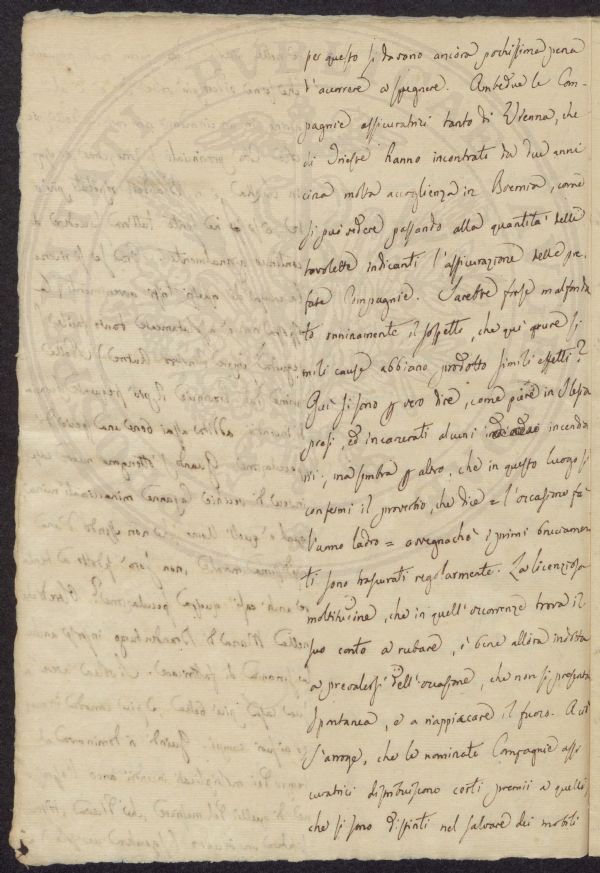 per questo si davano ancòra pochissima pena
d'accorrere a spegnere. Ambedue le Com-
pagnie assicuratrici tanto di Vienna, che
di Trieste hanno incontrato da due anni
circa molta accoglienza in Boemia, come
si può vedere passando alla quantità delle
tavolette indicanti l'assicurazione delle pre-
fate Compagnie. Sarebbe forse malfonda
to onninamente il sospetto, che quì pure si
mili cause abbiano prodotto simili effetti?
Quì si sono p vero dire, come pure in Slesia
presi, ed incarcerati alcuni incendia
rii, ma sembra p altro, che in questo luogo si
confermi il proverbio, che dice = l'occasione fà
l'uomo ladro = avvegnachè i primi bruciamen
ti sono trascurati regolarmente. La licenziosa
moltitudine, che in quell'occorrenze trova il
suo conto a rubare, è bene allora indotta
a prevalersi dell'occasione, che non si presenta
spontanea, e a riappiccare il fuoco. A ciò
s'arroge, che le nominate Compagnie assi
curatrici distribuiscono certi premii a quelli,
che si sono distinti nel salvare dei mobili